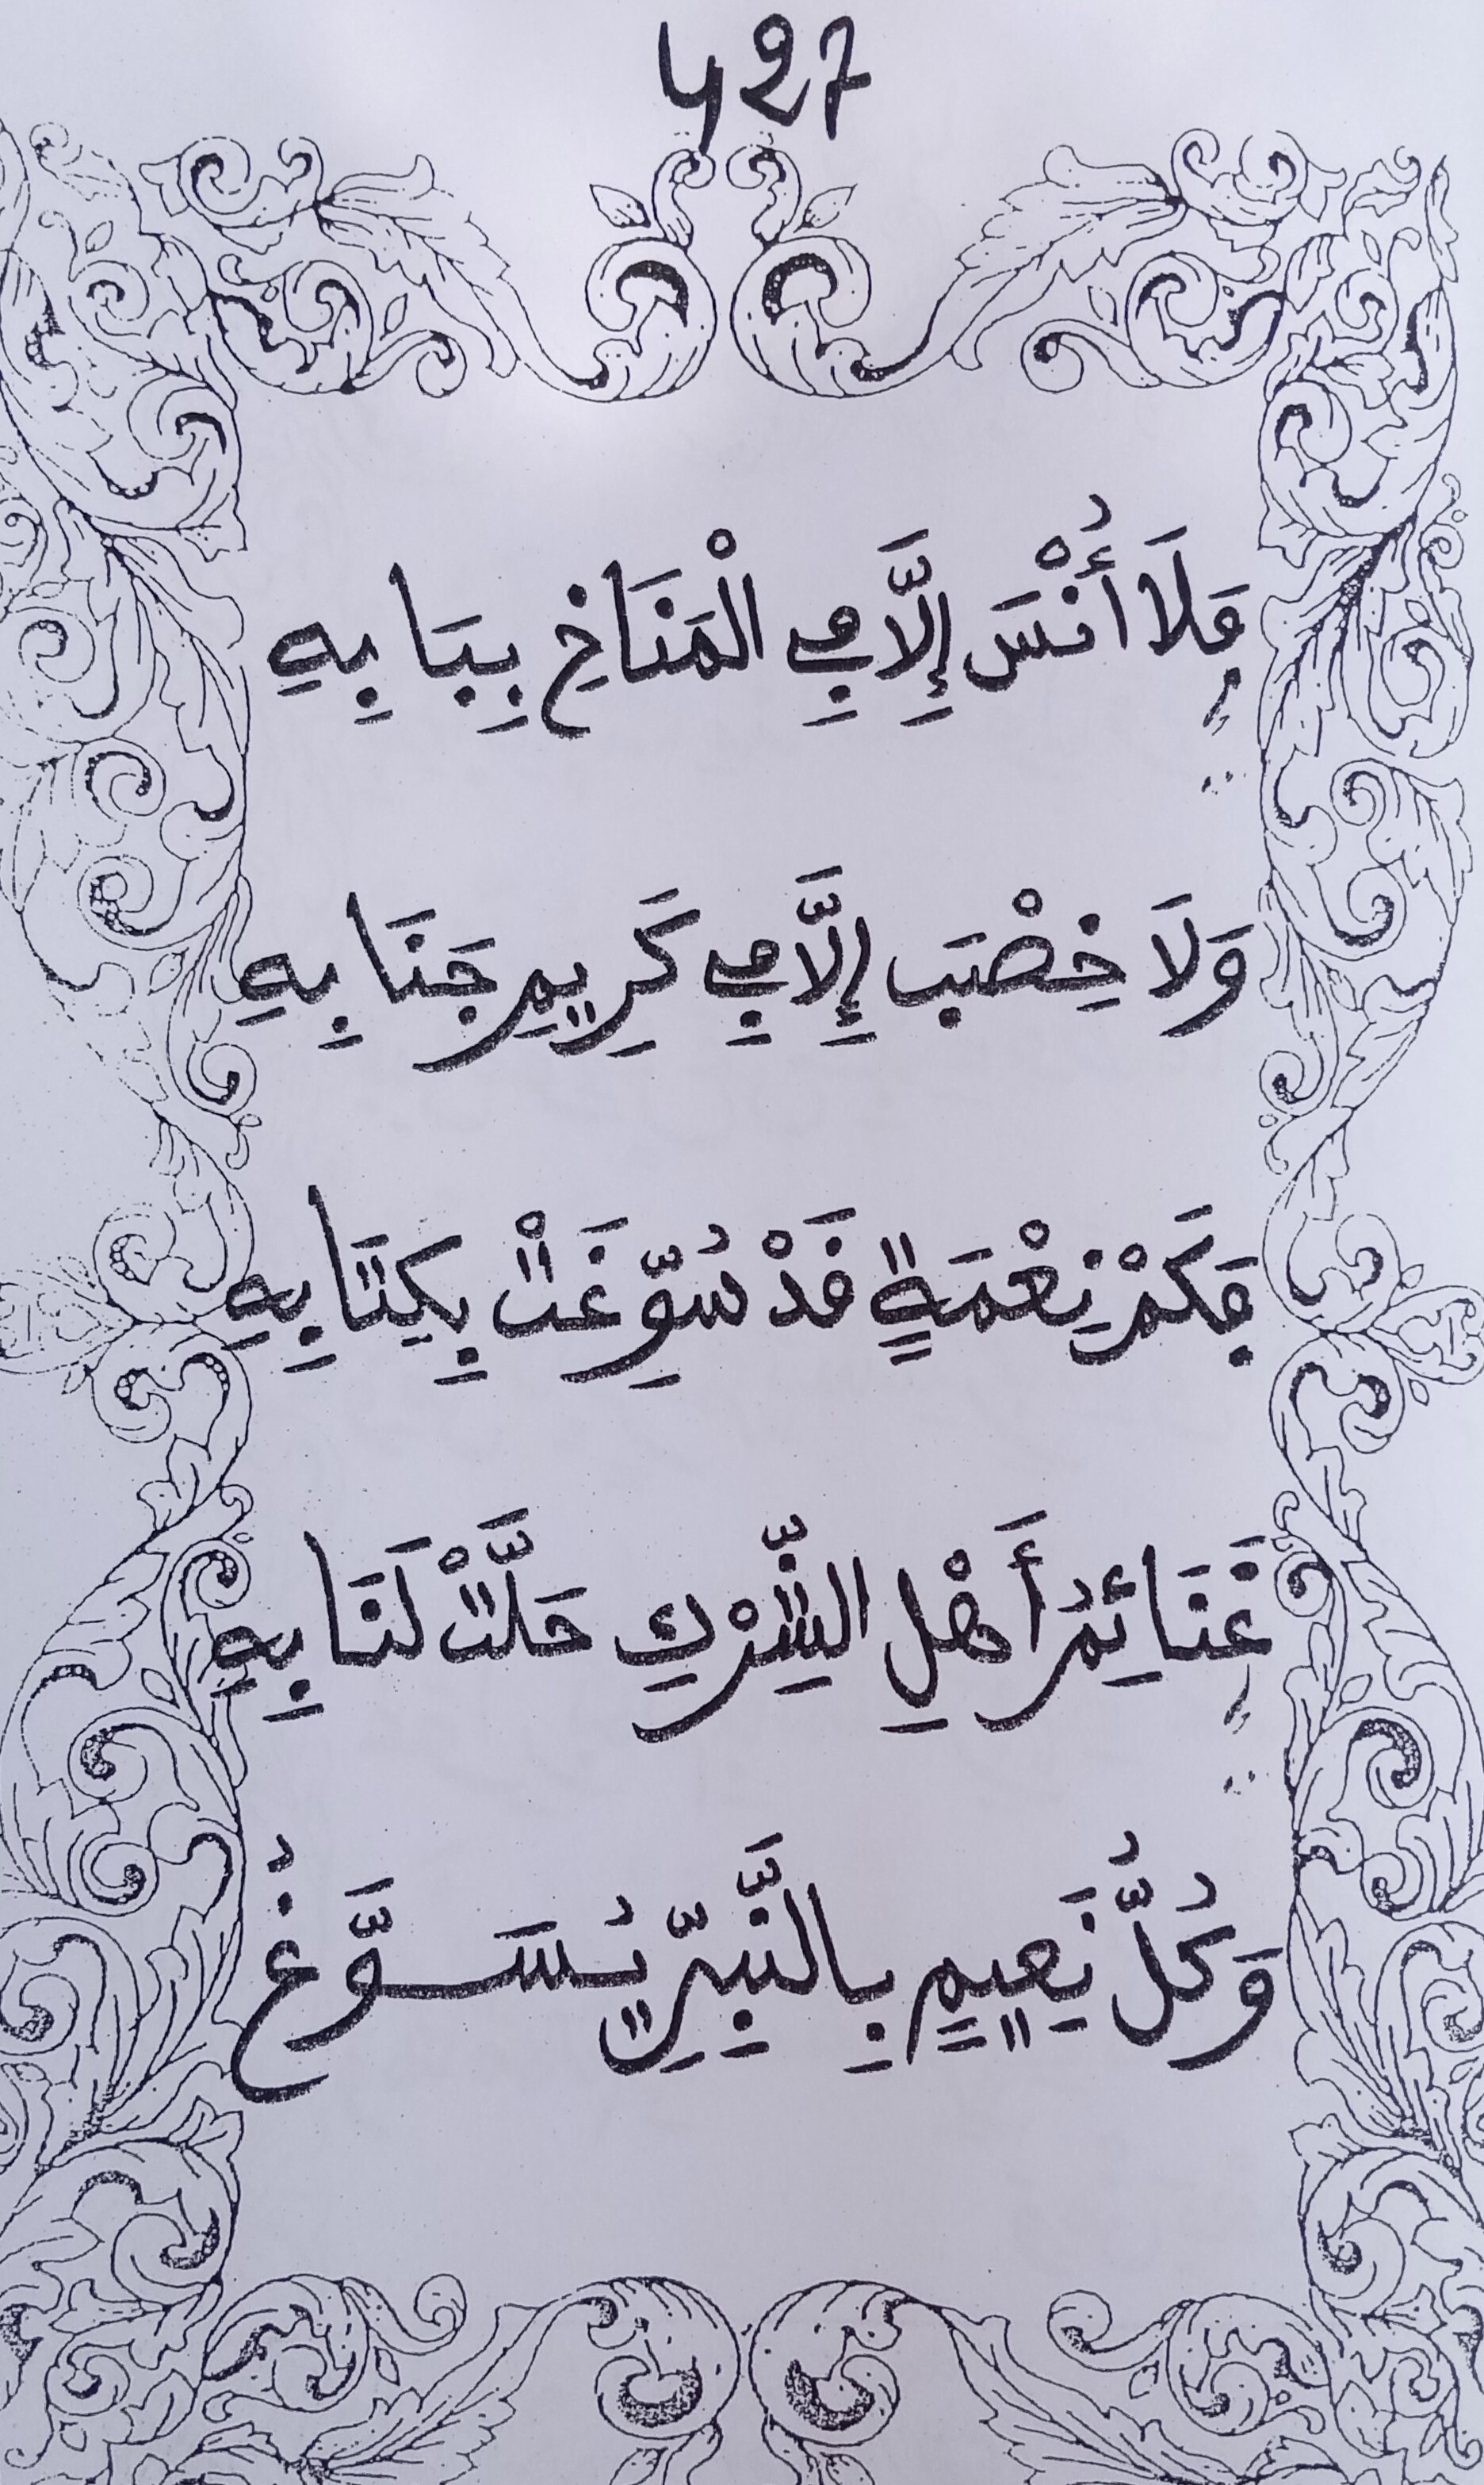 427
فَلَا أُنْسَ إِلَّا فِي الْمَنَاخِ بِبَابِهِ
وَلَا خِصْبَ إِلَّا فِي كَرِيمِ جَنَابِهِ
فَكَمْ نِعْمَةٍ قَدْ سُوِّغَتْ بِكِتَابِهِ
غَنَائِمُ أَهْلِ الشِّرْكِ حَلَّتْ لَنَا بِهِ
وَكُلُّ نَعِيمٍ بِالنَّبِيِّ يُسَوَّغُ